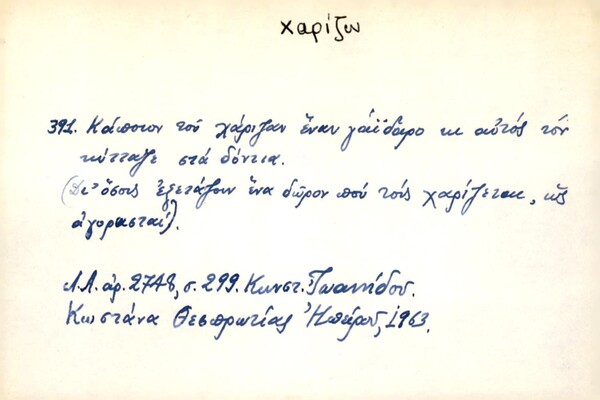 χαρίζω
391. Κάποιον τοῦ χάριζαν ἕναν γάϊδαρο κι αὐτός τόν
κύτταζε στά δόντια.
(Δι' ὅσους ἐξετάζουν ἕνα δῶρον πού τούς χαρίζεται, ὡς
ἀγορασταί).
Λ.Α. ἀρ. 2748, σ. 299. Κωνστ. Ἰωαννίδου.
Κωστάνα Θεσπρωτίας Ἠπείρου, 1963.